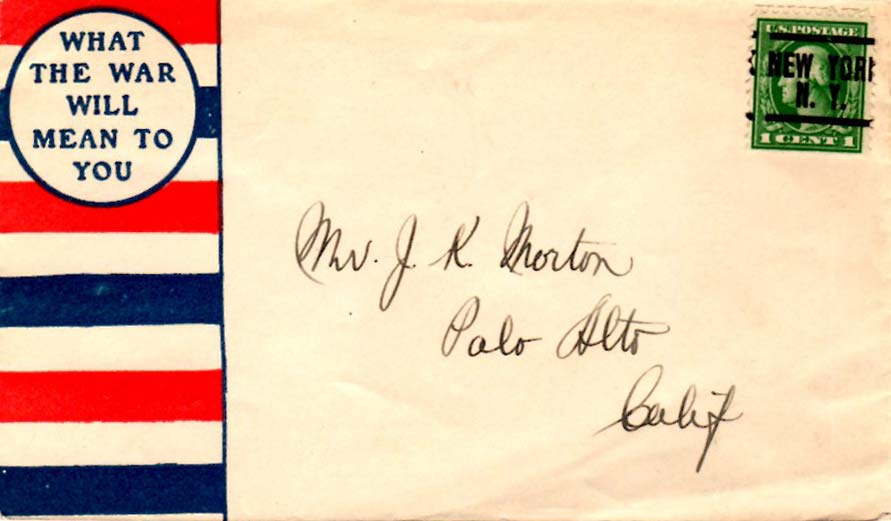 WHAT
THE WAR
WILL
MEAN TO
YOU
U.S. POSTAGE
NEW YORK
N. Y.
1 CENT 1
Mr. J. K. Morton
Palo Alto
Calif